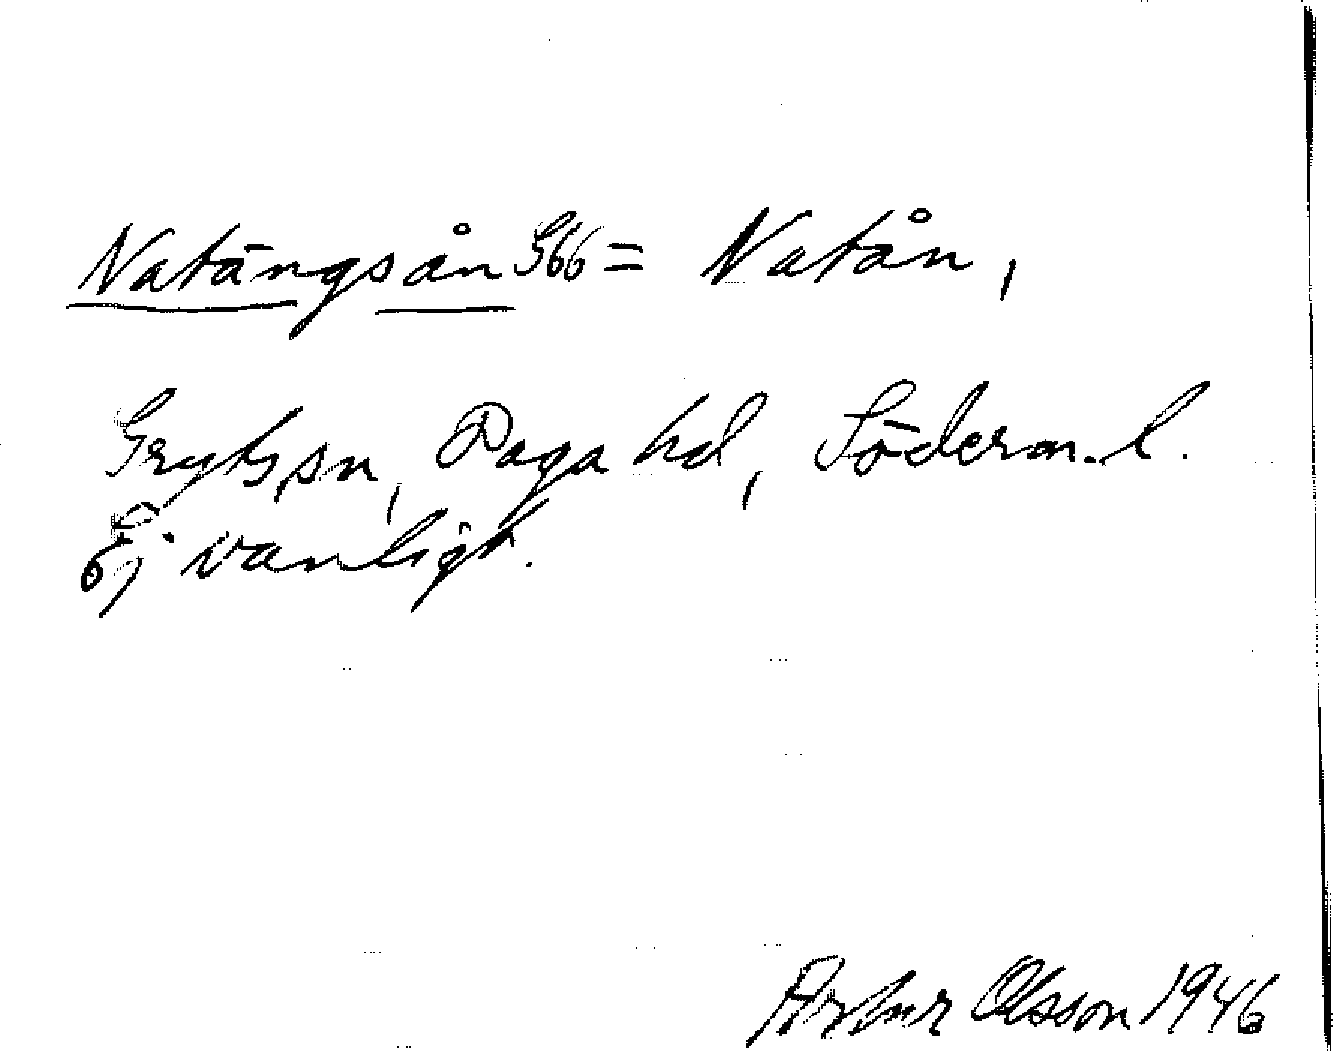 Natängsån 366 = Natån,
Gryts sn, Daga hd, Söderm. l.
Ej vanligt.
Arthur Olsson 1946